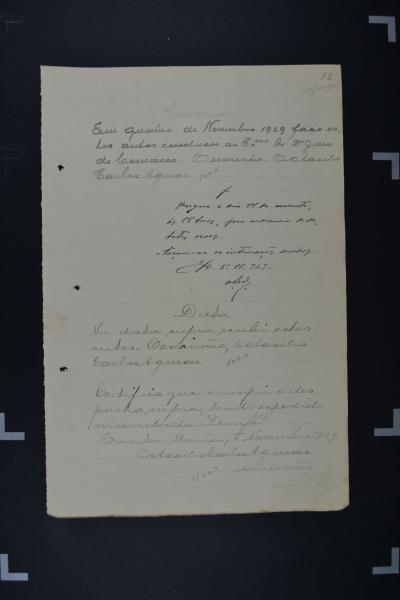 13
Em quatro de Novembro 1929 faço es-
tes autos conclusos ao Exmo Sr Dr Juiz
de Comarca. O escrivão, Octacilio
Carlos Aguiar
Designo o dia 11 do corrente,
ás 15 horas, para audiencia de de-
bates oraes.
Façam-se as intimações devidas.
5.11.929.
Data
Na data supra recebi estes
autos. O escrivão, Octacilio
Carlos Aguiar
Certifico que cumpri o des
pacho supra, sendo expedido
mandado. Dou fé
Santa Maria, 5 Novembro 1929
Octacilio Carlos Aguiar
escrivão